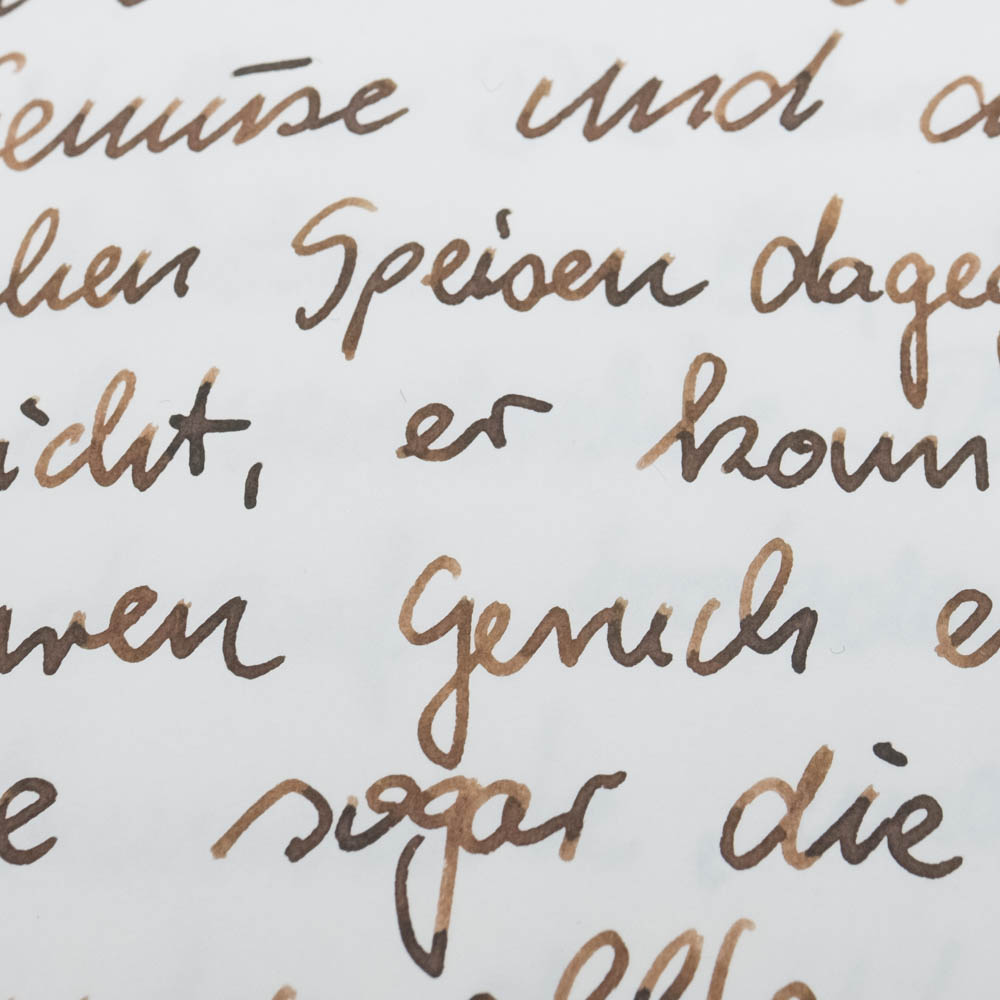 Gemüse und d
hen Speisen dageg
icht, er konn
ren Geruch e
e sogar die